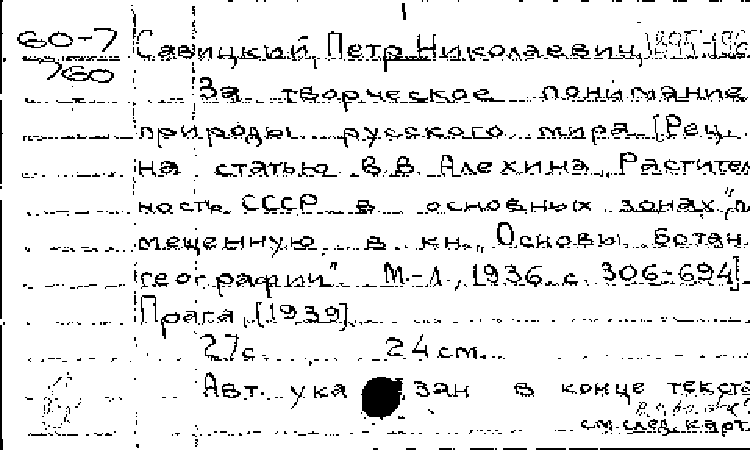 60-7 Савицкий, Петр Николаевич, 1895-196
760
За творческое понимание
природы русского мира [Рец.
на статью В.В. Алехина „Растител
ность СССР в основных зонах", по
мещенную в кн. „Основы ботан.
географии" М.-Л., 1936 с. 306-694]
Прага, [1939]
27с. 24 см.
Авт. ука зан в конце текста
см. след. карт.